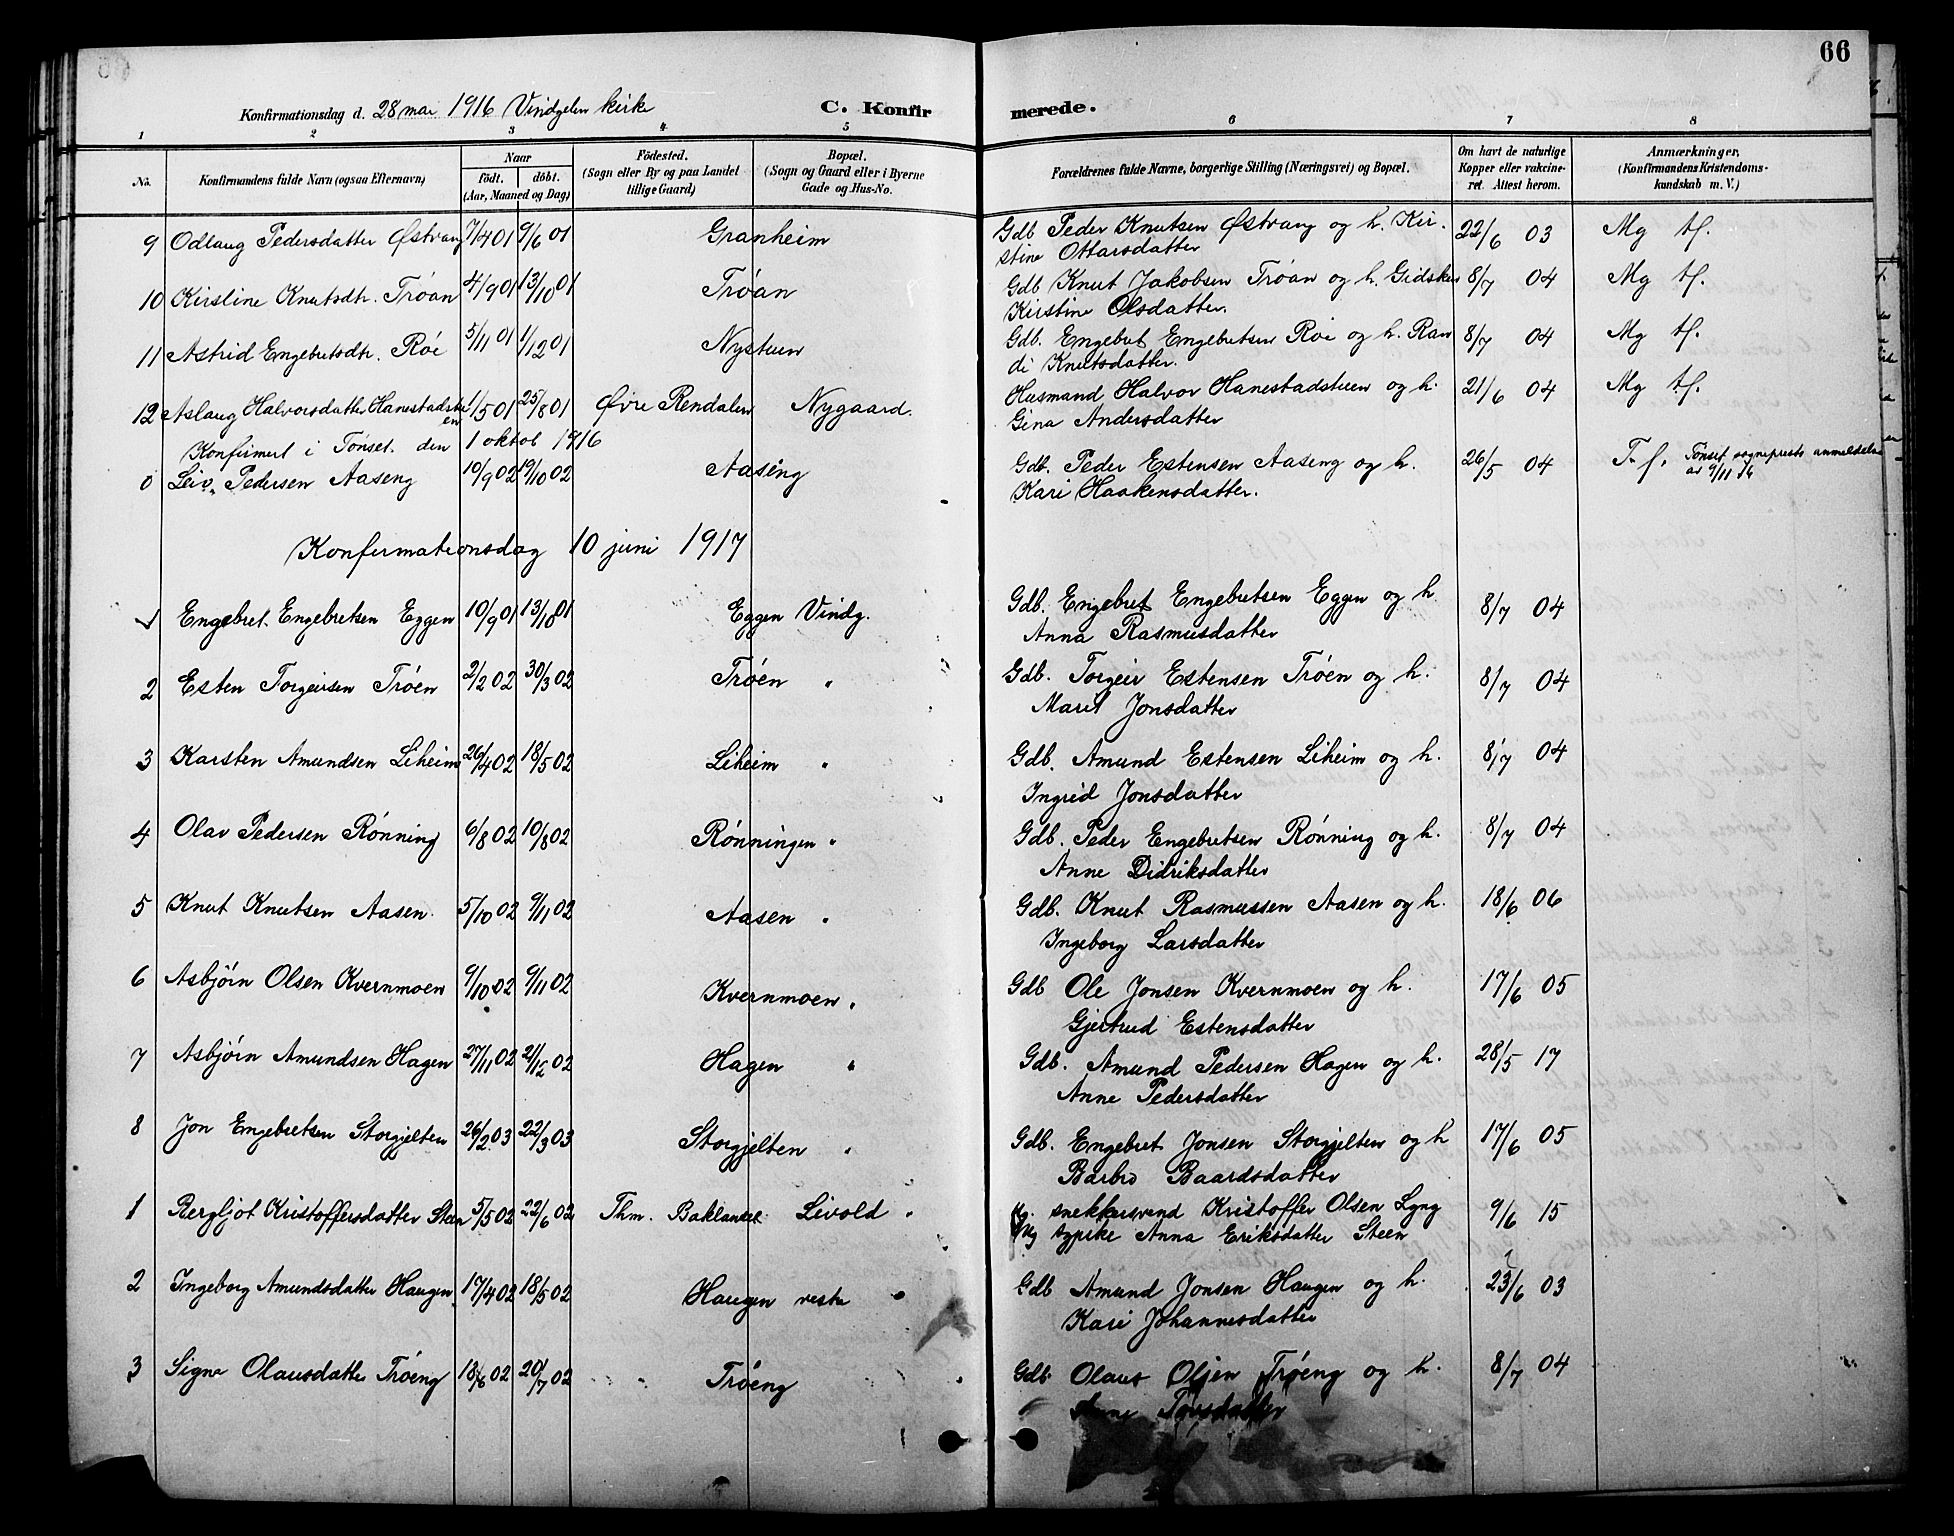 66
Konfirmationsdag d. 28 mai 1916 Vindgelen kirke C. Konfirmerede.
1 2 3 4 5 6 7 8
No. Konfirmandens fulde Navn (ogsaa Efternavn) Naar födt. döbt. (Aar, Maaned og Dag) Födested. (Sogn eller By og paa Landet tillige Gaard) Bopæl. (Sogn og Gaard eller i Byerne Gade og Hus-No. Forældrenes fulde Navne, borgerlige Stilling (Næringsvei) og Bopæl. Om havt de naturlige Kopper eller vakcineret. Attest herom. Anmærkninger, (Konfirmandens Kristendomskundskab m. V.)
9 Odlaug Pedersdatter Østvang 7/4 01 9/6 01 Granheim Gdb Peder Knutsen Østvang og h. Kir- 22/6 03 Mg tf.
stine Ottarsdatter
10 Kirstine Knutsdtr. Tróan 4/9 01 13/10 01 Tróan Gdb Knut Jakobsen Tróan og h. Gidsken 8/7 04 Mg tf.
Kirstine Olsdatter.
11 Astrid Engebretsdtr. Róe 5/11 01 1/12 01 Nystuen Gdb. Engebret Engebretsen Róe og h. Ran 8/7 04 Mg tf.
di Knutsdatter.
12 Aslaug Halvorsdatter Hanestadstuen 1/5 01 25/8 01 Øvre Rendalen Nygaard. Husmand Halvor Hanestadstuen og h. 21/6 04 Mg tf.
Gina Andersdatter
Konfirmert i Tönset den 1 oktob 1916
0 Leiv Pedersen Aaseng 10/9 02 19/10 02 Aaseng Gdb. Peder Estensen Aaseng og h. 26/5 04 T. f. Tönset sogneprests anmeldelse
Kari Haakensdatter. av 9/11 16
Konfirmationsdag 10 juni 1917
1 Engebret Engebretsen Eggen 10/9 01 13/10 01 Eggen Vindg. Gdb. Engebret Engebretsen Eggen og h. 8/7 04
Anna Rasmusdatter
2 Esten Torgeirsen Tróen 2/2 02 30/3 02 Tróen " Gdb. Torgeir Estensen Tróen og h. 8/7 04
Maret Jonsdatter
3 Karsten Amundsen Liheim 26/4 02 18/5 02 Liheim " Gdb. Amund Estensen Liheim og h. 8/7 04
Ingrid Jonsdatter
4 Olav Pedersen Rónning 6/8 02 10/8 02 Rónningen " Gdb. Peder Engebretsen Rónning og h. 8/7 04
Anne Didriksdatter
5 Knut Knutsen Aasen. 5/10 02 9/11 02 Aasen " Gdb. Knut Rasmussen Aasen og h. 18/6 06
Ingeborg Larsdatter
6 Asbjórn Olsen Kvernmoen 9/10 02 9/11 02 Kvernmoen " Gdb Ole Jonsen Kvernmoen og h. 17/6 05
Gjertrud Estensdatter
7 Asbjórn Amundsen Hagen 27/11 02 21/12 02 Hagen " Gdb. Amund Pedersen Hagen og h. 28/5 17
Anne Pedersdatter
8 Jon Engebretsen Storgjelten 26/2 03 22/3 03 Storgjelten " Gdb. Engebret Jonsen Storgjelten og h 17/6 05
Barbro Baardsdatter
1 Bergljot Kristoffersdatter Steen 5/5 02 22/6 02 Thm. Baklandet Livold " Ug. snekkersvend Kristoffer Olsen Lyng 9/6 15
Ug sypike Anna Eriksdatter Steen
2 Ingeborg Amundsdatter Haugen 17/4 02 18/5 02 Haugen vestre " Gdb Amund Jonsen Haugen og h. 23/6 03
Kari Johannesdatter
3 Signe Olausdatter Tróeng 18/6 02 20/7 02 Tróeng " Gdb. Olaus Olsen Tróeng og h. 8/7 04
Anne